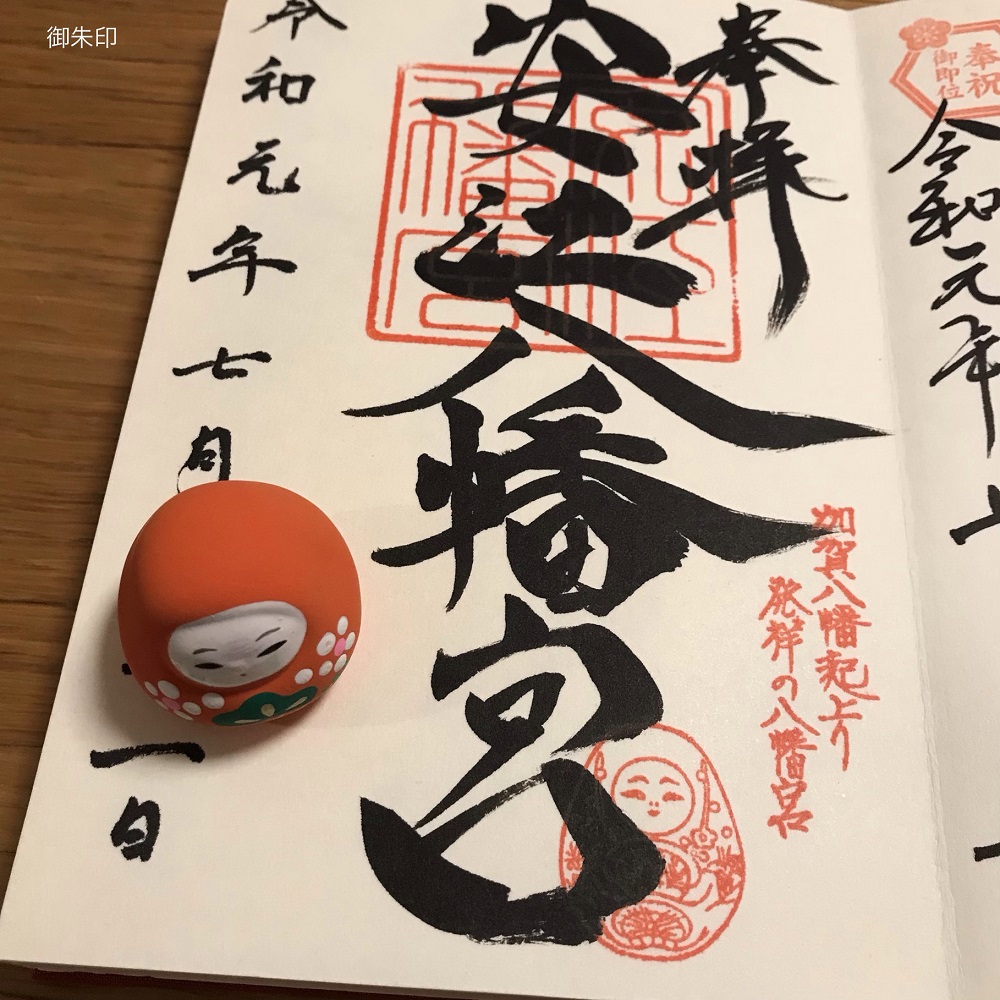 御朱印
奉拝
安江八幡宮
加賀八幡起上り
発祥の八幡宮
令和元年七月
一日
奉祝
御即位
令和元年